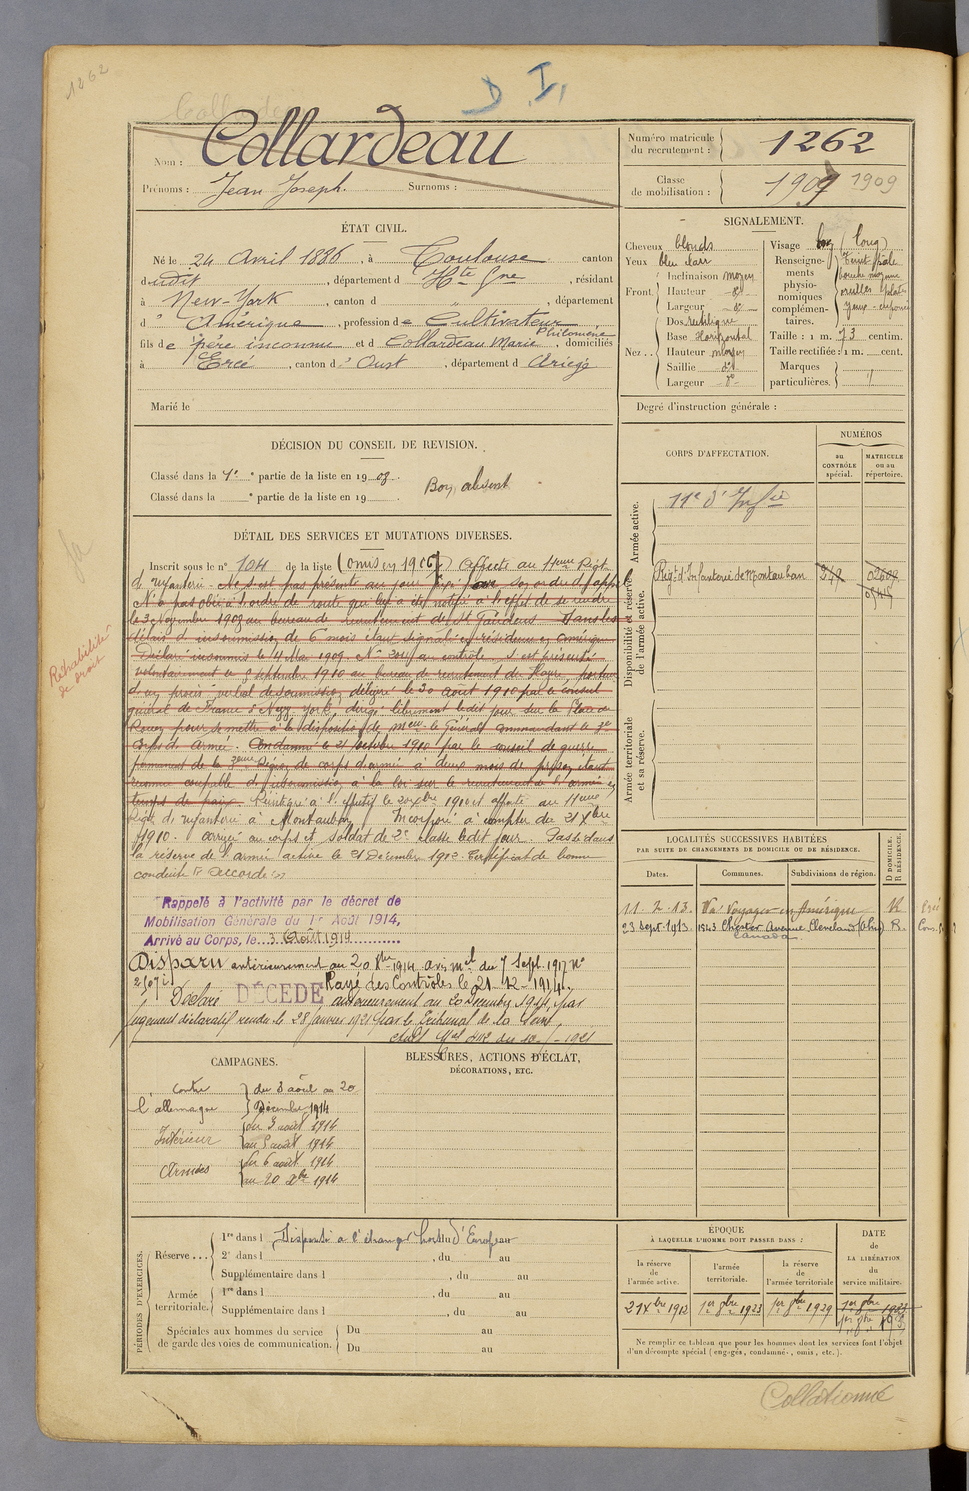 1262
D I,
Nom : Collardeau
Prénoms : Jean Joseph. Surnoms :
Numéro matricule du recrutement : 1262
Classe de mobilisation : 1909 1909
ÉTAT CIVIL.
Né le 24 Avril 1886, à Toulouse canton
dudit, département d Hte Gne, résidant
à New-York, canton d ", département
d' Amérique, profession de Cultivateur
fils de père inconnu et d Collardeau Marie Philomène, domiciliés
à Ercé, canton d' Oust, département d Ariège
Marié le
SIGNALEMENT.
Cheveux blonds
Yeux bleu clair
Front. Inclinaison moyen
Hauteur do
Largeur do
Nez .. Dos rectiligne
Base Horizontal
Hauteur moyen
Saillie do
Largeur do
Visage long (long)
Renseignements physionomiques complémentaires. Teint pâle
bouche moyenne
Taille : 1 m. 73 centim.
Taille rectifiée : 1 m. cent.
Marques particulières.
Degré d'instruction générale :
DÉCISION DU CONSEIL DE REVISION.
Classé dans la 1e partie de la liste en 1908.
Classé dans la e partie de la liste en 19
Bon, absent
CORPS D'AFFECTATION.
NUMÉROS
au CONTRÔLE spécial.
MATRICULE ou au répertoire.
Armée active.
11e d'Infie
Disponibilité et réserve de l'armée active.
Régt d'Infanterie de Montauban
Armée territoriale et sa réserve.
DÉTAIL DES SERVICES ET MUTATIONS DIVERSES.
Inscrit sous le n° 104 de la liste (omis en 1906) Affecté au 11eme Régt
d'Infanterie. Ne s'est pas présenté au jour fixé par son ordre d'appel
N'a pas obéi à l'ordre de route qui lui a été notifié à l'effet de se rendre
le 3 Novembre 1908 au bureau de recrutement de St Gaudens. Dans les
délais d'insoumission de 6 mois étant signalé en résidence en Amérique
Déclaré insoumis le 11 Mai 1909. S'est présenté
volontairement le 9 septembre 1910 au bureau de recrutement du Havre, porteur
d'un procès verbal de soumission délivré le 30 août 1910 par le consul
général de France à New York, dirigé librement ledit jour sur la Place de
Rouen pour se mettre à la disposition de Mr le Général Commandant le 3e
Corps d'armée. Condamné le 21 octobre 1910 par le conseil de guerre
permanent de la 3eme Région de corps d'armée à deux mois de prison étant
reconnu coupable d'insoumission à la loi sur le recrutement de l'armée en
temps de paix. Réintégré à l'effectif le 20 Xbre 1910 et affecté au 11eme
Régt d'Infanterie à Montauban. Incorporé à compter du 21 Xbre
1910. arrivé au corps et soldat de 2e classe ledit jour. Passé dans
la réserve de l'armée active le 21 Décembre 1912. Certificat de bonne
conduite Accordé
Réhabilité de droit
Rappelé à l'activité par le décret de
Mobilisation Générale du 1er Août 1914,
Arrivé au Corps, le 3 Août 1914
Disparu antérieurement au 20 Xbre 1914 avis mel du 7 Sept. 1917 n°
Rayé des Contrôles le 21-12-1914.
Déclaré DÉCÉDÉ antérieurement au 20 Décembre 1914, par
jugement déclaratif rendu le 28 janvier 1921 par le Tribunal de la Seine,
LOCALITÉS SUCCESSIVES HABITÉES
PAR SUITE DE CHANGEMENTS DE DOMICILE OU DE RÉSIDENCE.
Dates. Communes. Subdivisions de région. D DOMICILE. R RÉSIDENCE.
11.2.13. Va Voyager en Amérique R
23 Sept. 1913. 1843 Chester Avenue Cleveland (Ohio) R.
Canada
CAMPAGNES.
Contre l'allemagne du 3 août au 20
Décembre 1914
Intérieur du 3 août 1914
au 5 août 1914
Armées du 6 août 1914
au 20 Xbre 1914
BLESSURES, ACTIONS D'ÉCLAT,
DÉCORATIONS, ETC.
PÉRIODES D'EXERCICES.
Réserve ... 1re dans l Dispensé à l'étranger hors d'Europe
2e dans l , du au
Supplémentaire dans l , du au
Armée territoriale. 1re dans l , du au
Supplémentaire dans l , du au
Spéciales aux hommes du service de garde des voies de communication. Du au
Du au
ÉPOQUE
À LAQUELLE L'HOMME DOIT PASSER DANS :
la réserve de l'armée active.
l'armée territoriale.
la réserve de l'armée territoriale
DATE de LA LIBÉRATION du service militaire.
21 Xbre 1912
1er 8bre 1923
1er 8bre 1929
Ne remplir ce tableau que pour les hommes dont les services font l'objet
d'un décompte spécial (engagés, condamnés, omis, etc.).
Collationné